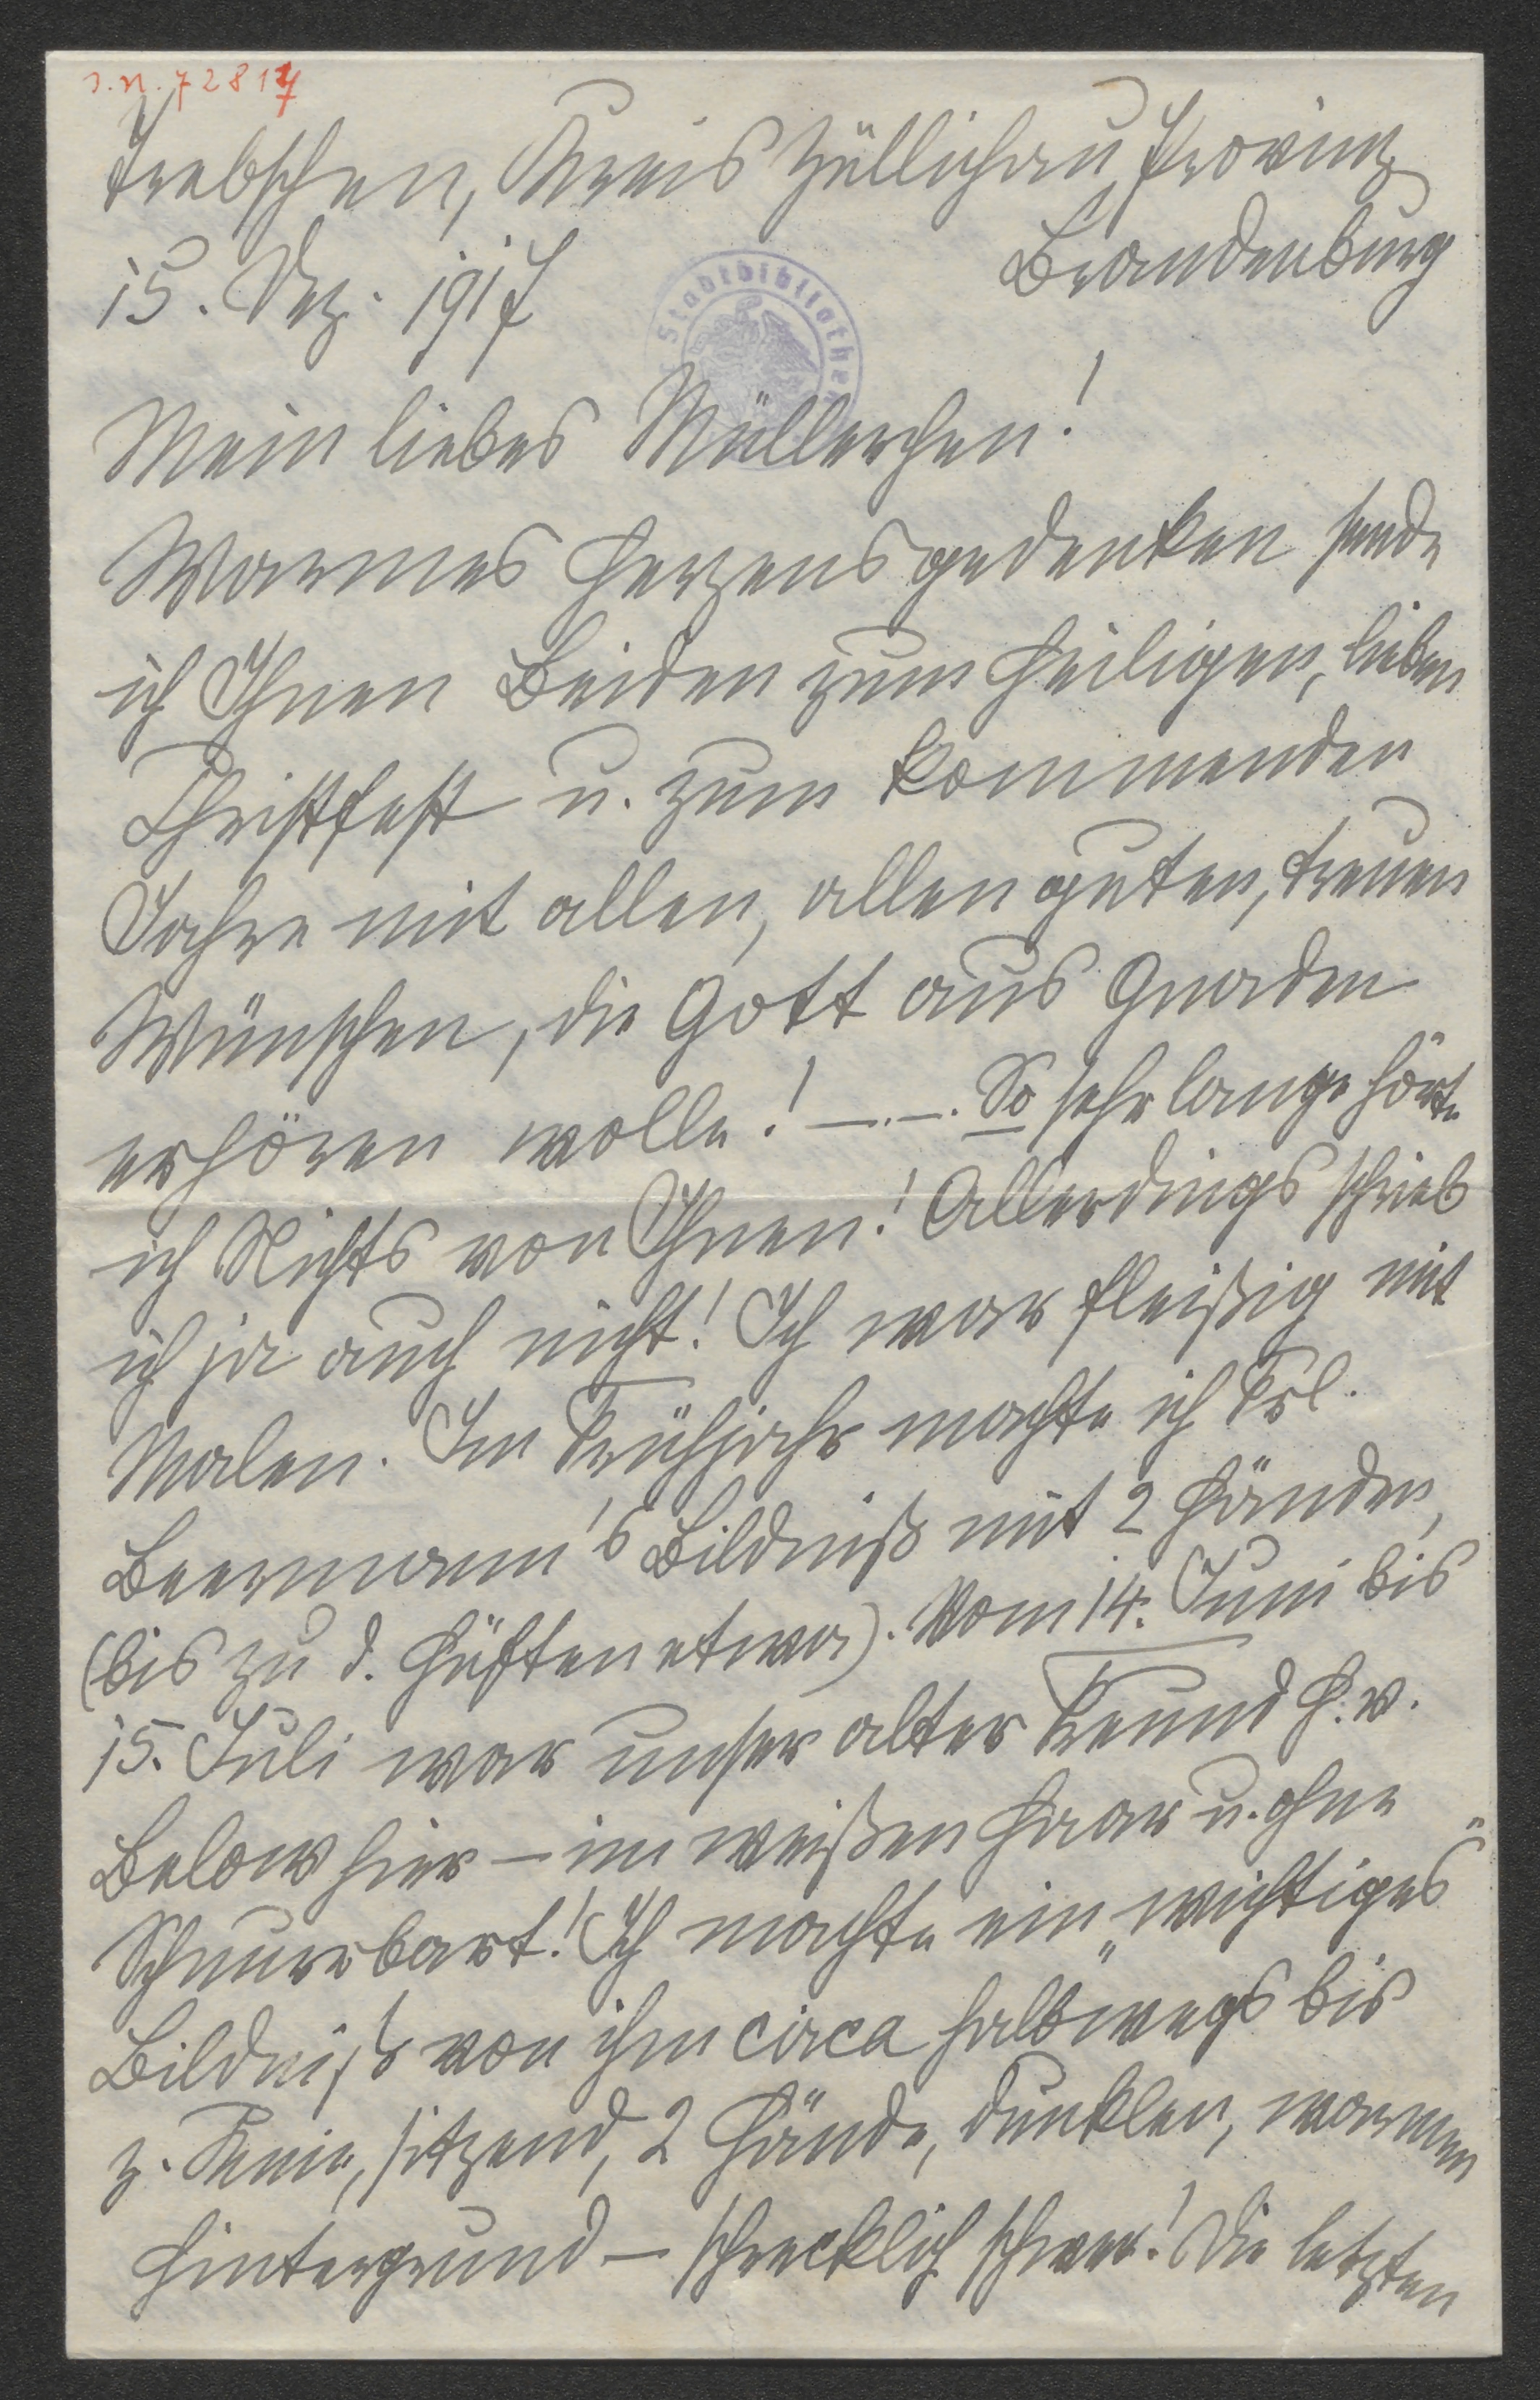 J.N. 72817
Trebschen, Kreis Züllichau, Provinz
Brandenburg
15. Dez. 1917
Stadtbibliothek
Mein liebes Müllerchen!
Warmes Herzensgedenken sende
ich Ihnen Beiden zum heiligen, lieben
Christfest u. zum kommenden
Jahre mit allen, allen guten, treuen
Wünschen, die Gott aus Gnaden
erhören wolle! —.—. So sehr lange hörte
ich Nichts von Ihnen! Allerdings schrieb
ich ja auch nicht! Ich war fleißig mit
Malen. Im Frühjahr machte ich Frl.
Beermann's Bildniß mit 2 Händen,
(bis zu d. Hüften etwa). Vom 14. Juni bis
15. Juli war unser alter Freund H. v.
Below hier – im weißen Haar u. ohne
Schnurrbart! Ich machte ein „wichtiges"
Bildniß von ihm circa halbwegs bis
z. Knie, sitzend, 2 Hände, dunklen, warmen
Hintergrund – schrecklich schwer! Die letzten